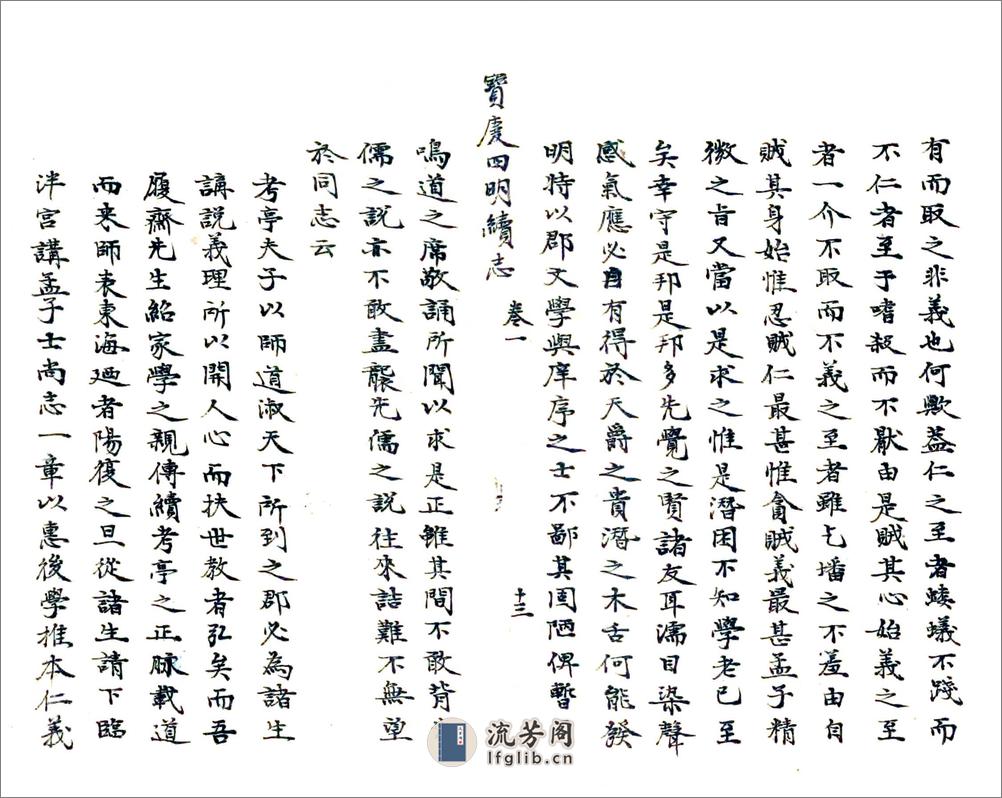 有而取之非義也何歟葢仁之至者螻蟻不踐而
不仁者至于嗜殺而不厭由是賊其心始義之至
者一介不取而不義之至者雖乞墦之不羞由自
賊其身始惟忍賊仁最甚惟貪賊義最甚孟子精
微之旨又當以是求之惟是潛困不知學老已至
矣幸守是邦是邦多先覺之賢諸友耳濡目染聲
感氣應必自有得於天爵之貴潛之木舌何能發
明特以郡文學與庠序之士不鄙其固陋俾暫
寶慶四明續志 卷一 十三
鳴道之席敬誦所聞以求是正雖其間不敢背
儒之說亦不敢盡襲先儒之說往來詰難不無望
於同志云
考亭夫子以師道淑天下所到之郡必為諸生
講說義理所以開人心而扶世教者弘矣而吾
履齋先生紹家學之親傳續考亭之正脉載道
而來師表東海廼者陽復之旦從諸生請下臨
泮宮講孟子士尚志一章以惠後學推本仁義
流芳阁
lfglib.cn